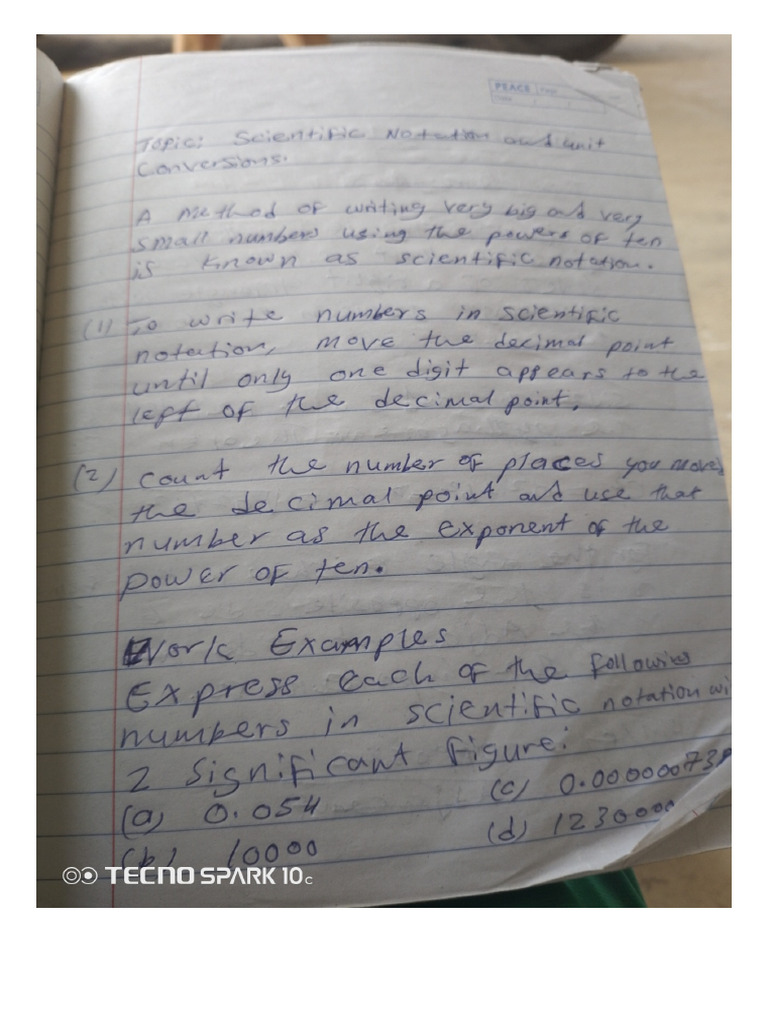 PEACE
Page
Date
Topic: Scientific Notation and unit
Conversions.
A method of writing very big and very
small numbers using the powers of ten
is known as scientific notation.
(1) To write numbers in scientific
notation, move the decimal point
until only one digit appears to the
left of the decimal point.
(2) Count the number of places you move
the decimal point and use that
number as the exponent of the
power of ten.
Work Examples
Express each of the following
numbers in scientific notation wi
2 Significant Figure:
(a) 0.054
(c) 0.00000073
(b) 10000
(d) 1230000
TECNO SPARK 10C